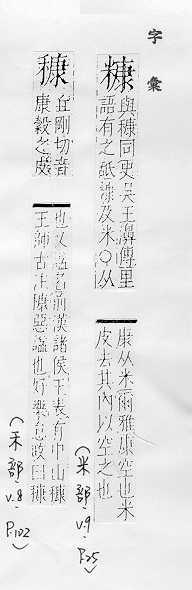 字彙
糠 與糠同史吳王濞傳里
語有之舐糠及米○从
康从米爾雅康空也米
皮去其內以空之也
(米部·v.9·P.25)
穅 丘剛切音
康穀之皮
也又謚名前漢諸侯王表有中山穅
王師古曰穅惡謚也好樂怠政曰穅
(禾部·v.8·P.102)